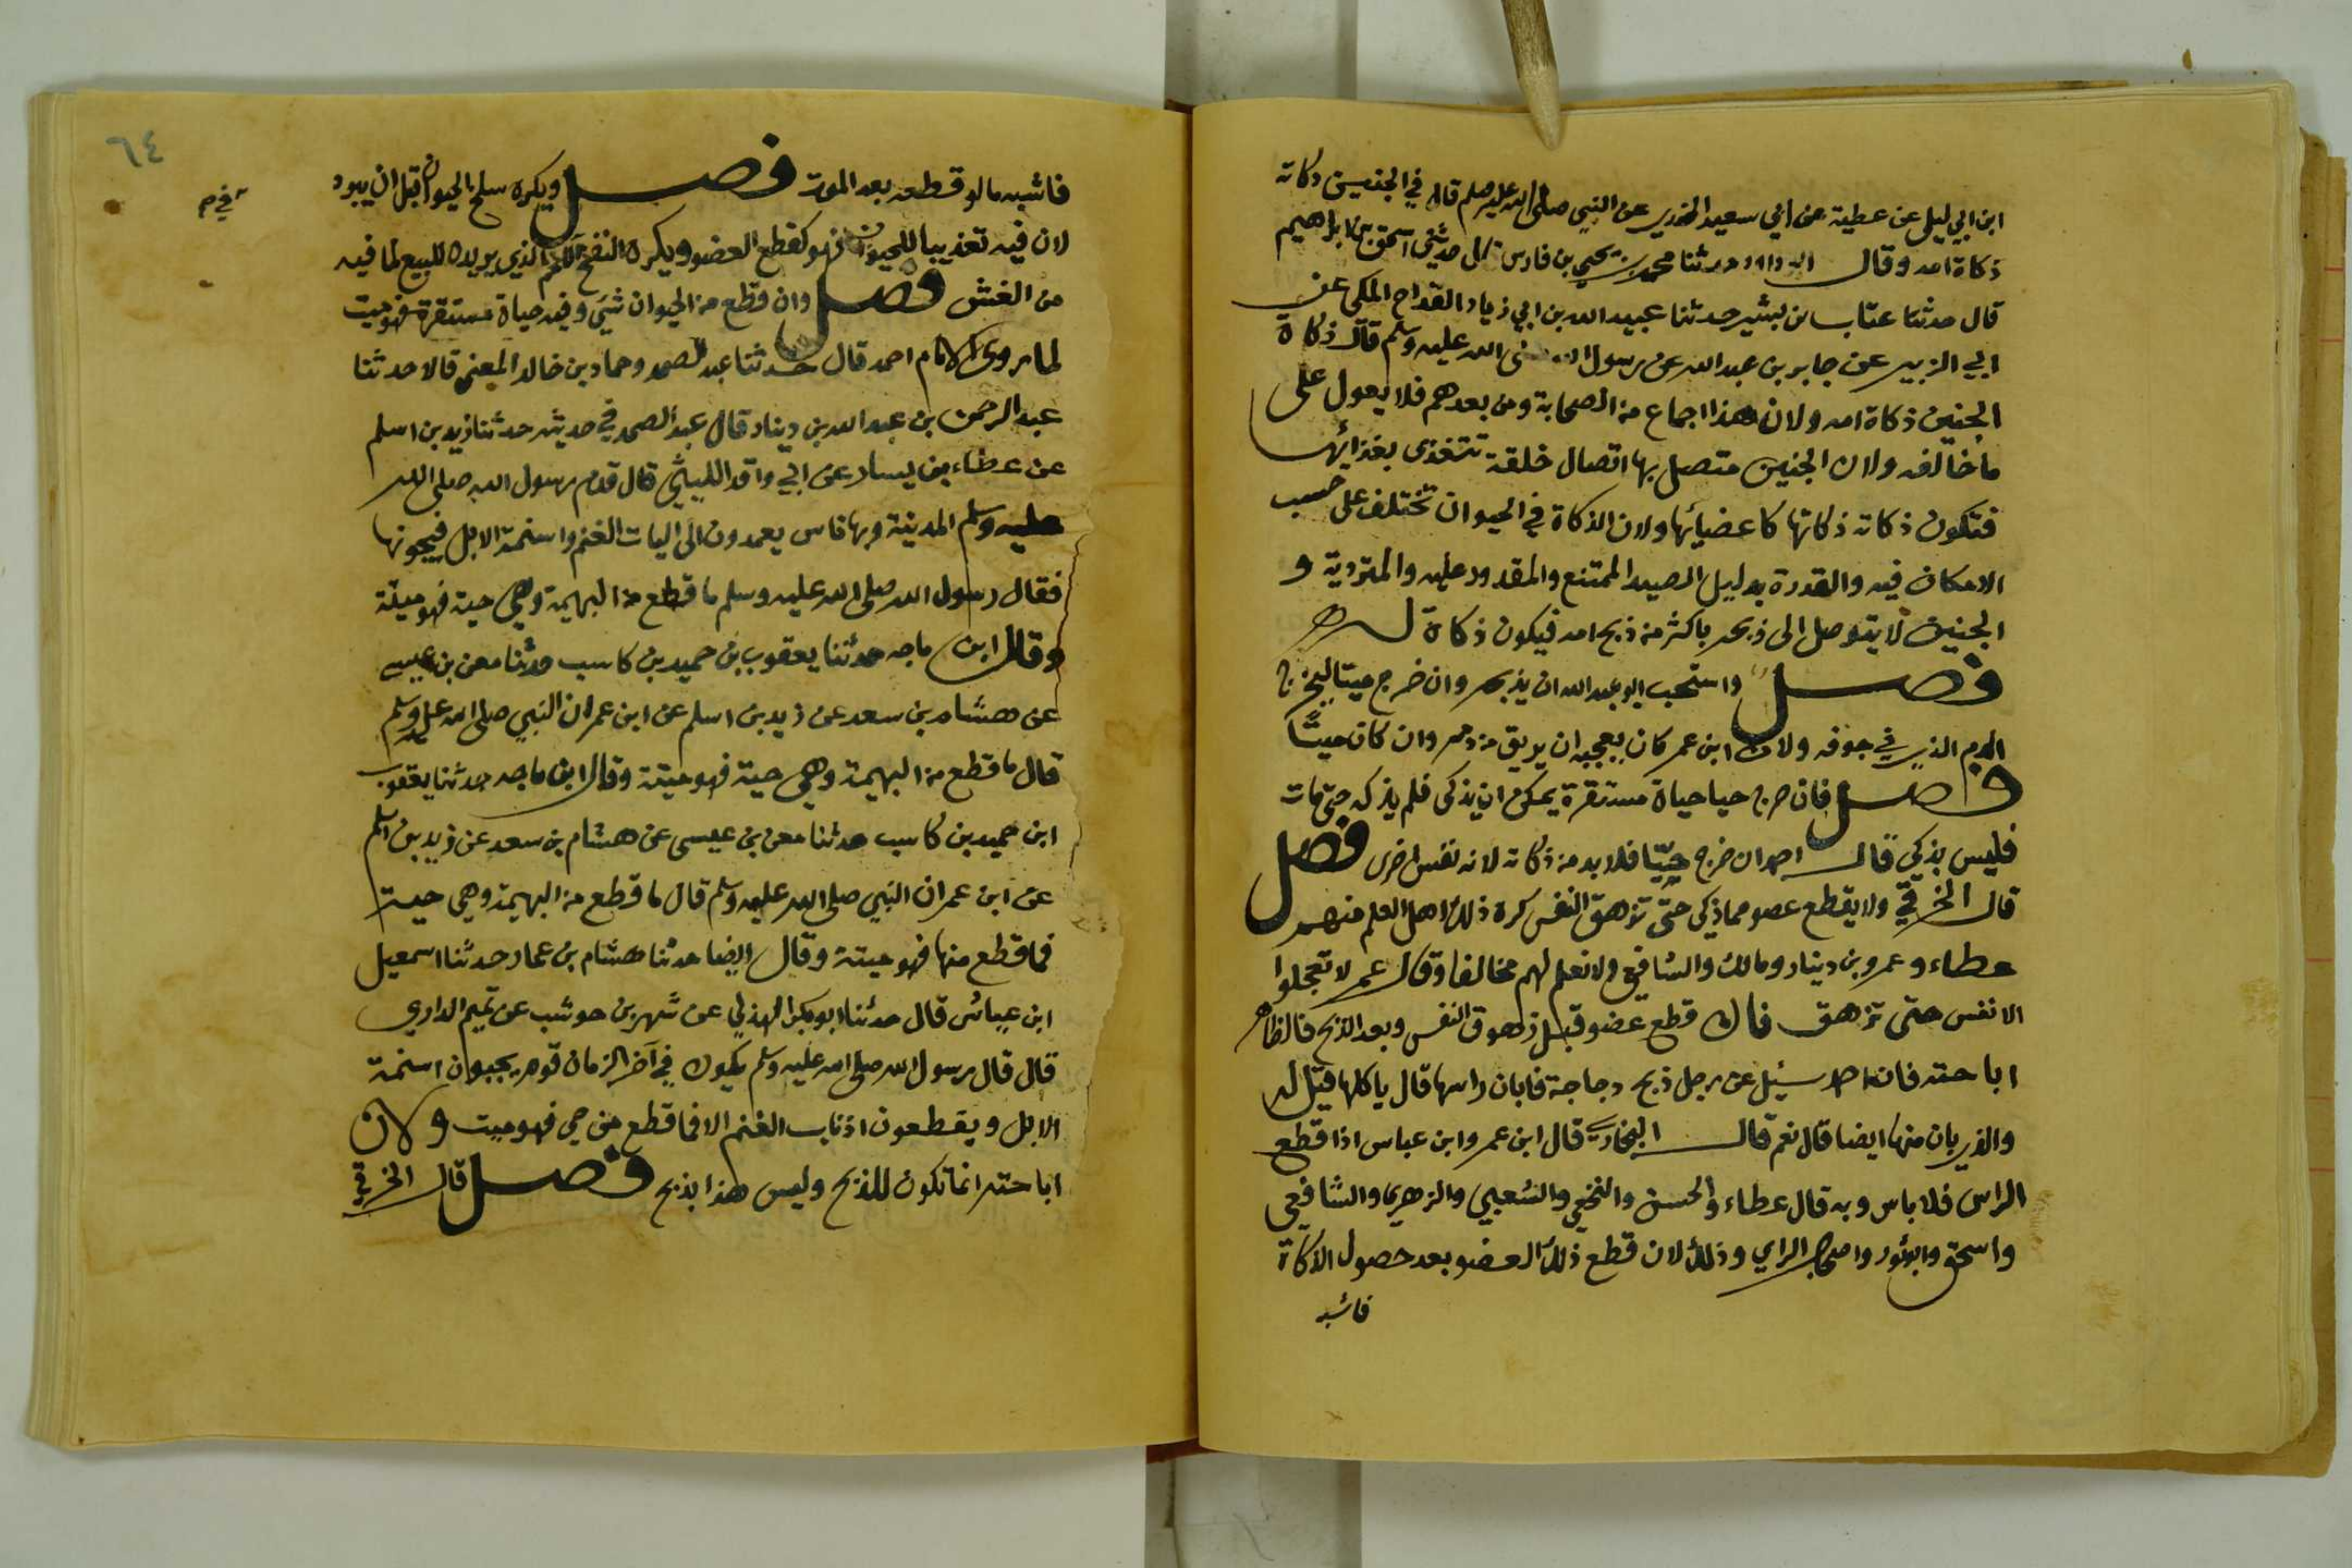 ابن ابي ليلى عن عطية عن ابي سعيد الخدري عن النبي صلى الله عليه وسلم قال في الجنين ذكاته
ذكاة امه وقال ابو داود حدثنا محمد بن يحيى بن فارس قال حدثني اسحق بن ابراهيم
قال حدثنا عتاب بن بشير حدثنا عبيد الله بن ابي زياد القداح المكي عن
ابي الزبير عن جابر بن عبد الله عن رسول الله صلى الله عليه وسلم قال ذكاة
الجنين ذكاة امه ولان هذا اجماع من الصحابة ومن بعدهم فلا يعول على
ما خالفه ولان الجنين متصل بها اتصال خلقة تتغذى بغذائها
فتكون ذكاته ذكاتها كاعضائها ولان الذكاة في الحيوان تختلف على حسب
الامكان فيه والقدرة بدليل الصيد الممتنع والمقدور عليه والمتردية و
الجنين لا يتوصل الى ذبحه باكثر من ذبح امه فيكون ذكاة له
فصل واستحب ابو عبد الله ان يذبحه وان خرج ميتا ليخرج
الدم الذي في جوفه ولان ابن عمر كان يعجبه ان يريق من دمه وان كان ميتًا
فصل فان خرج حيا حياة مستقرة يمكن ان يذكى فلم يذكه حتى مات
فليس بذكي قال احمد ان خرج حيّا فلا بد من ذكاته لانه نفس اخرى فصل
قال الخرقي ولا يقطع عضو مما ذكي حتى تزهق النفس كره ذلك اهل العلم منهم
عطاء وعمرو بن دينار ومالك والشافعي ولا نعلم لهم مخالفا وقال عمر لا تعجلوا
الانفس حتى تزهق فان قطع عضو قبل زهوق النفس وبعد الذبح فالظاهر
اباحته فان احمد سئل عن رجل ذبح دجاجة فابان راسها قال ياكلها قيل له
والذي بان منها ايضا قال نعم قال البخاري قال ابن عمر وابن عباس اذا قطع
الراس فلا باس وبه قال عطاء والحسن والنخعي والشعبي والزهري والشافعي
واسحق وابو ثور واصحاب الراي وذلك لان قطع ذلك العضو بعد حصول الذكاة
فاشبه
٦٤
فاشبه ما لو قطعه بعد الموت فصل ويكره سلخ الحيوان قبل ان يبرد
لان فيه تعذيبا للحيوان فهو كقطع العضو ويكره النفخ اللحم الذي يريده للبيع لما فيه
من الغش فصل وان قطع من الحيوان شيئ وفيه حياة مستقرة فهو ميت
لما روى الامام احمد قال حدثنا عبد الصمد وحماد بن خالد المعنى قالا حدثنا
عبد الرحمن بن عبد الله بن دينار قال عبد الصمد في حديثه حدثنا زيد بن اسلم
عن عطاء بن يسار عن ابي واقد الليثي قال قدم رسول الله صلى الله
عليه وسلم المدينة وبها ناس يعمدون الى اليات الغنم واسنمة الابل فيجبونها
فقال رسول الله صلى الله عليه وسلم ما قطع من البهيمة وهي حية فهو ميتة
وقال ابن ماجه حدثنا يعقوب بن حميد بن كاسب حدثنا معن بن عيسى
عن هشام بن سعد عن زيد بن اسلم عن ابن عمر ان النبي صلى الله عليه وسلم
قال ما قطع من البهيمة وهي حية فهو ميتة وقال ابن ماجه حدثنا يعقوب
ابن حميد بن كاسب حدثنا معن بن عيسى عن هشام بن سعد عن زيد بن اسلم
عن ابن عمر ان النبي صلى الله عليه وسلم قال ما قطع من البهيمة وهي حية
فما قطع منها فهو ميتة وقال ايضا حدثنا هشام بن عمار حدثنا اسمعيل
ابن عياش قال حدثنا ابو بكر الهذلي عن شهر بن حوشب عن تميم الداري
قال قال رسول الله صلى الله عليه وسلم يكون في آخر الزمان قوم يجبون اسنمة
الابل ويقطعون اذناب الغنم الا فما قطع من حي فهو ميت ولان
اباحته انما تكون للذبح وليس هذا بذبح فصل قال الخرقي